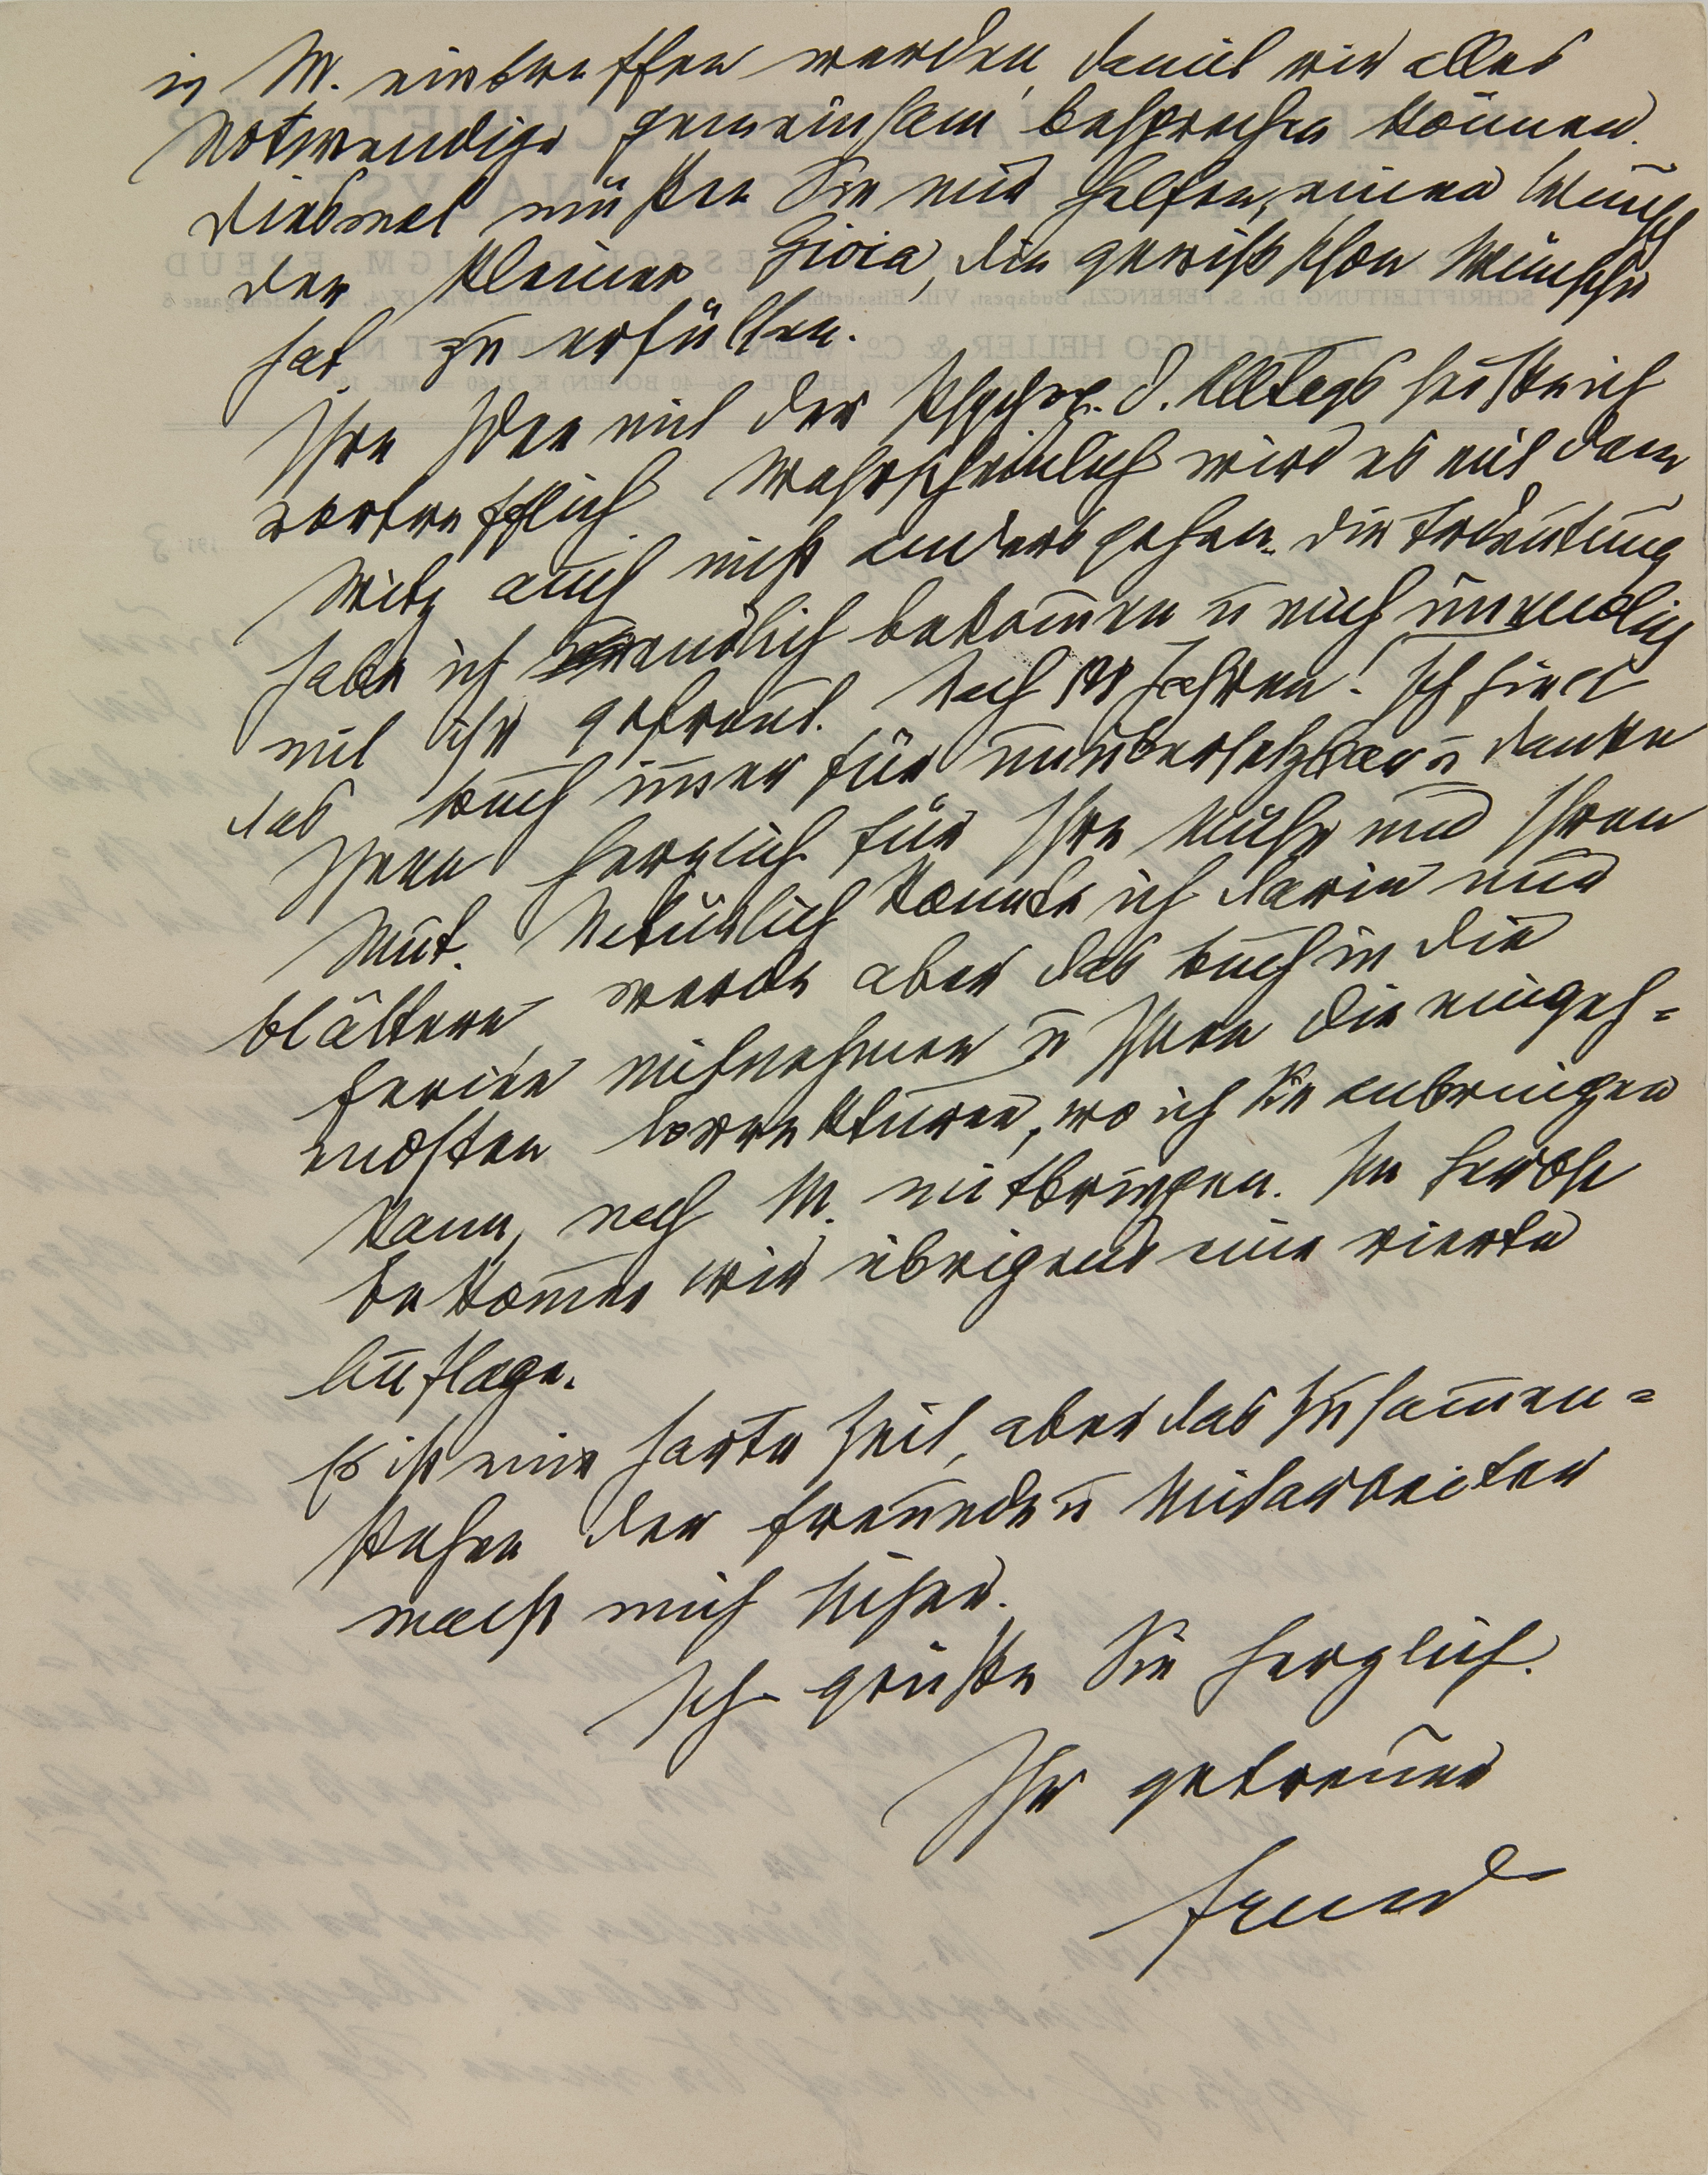 in M. eintreffen werden, damit wir alles
Notwendige gemeinsam besprechen können.
Diesmal müßen Sie mir helfen, einen Wunsch
der kleinen Gioia, die gewiß schon Wünsche
hat zu erfüllen.
Ihre Idee mit der Psychop. d. Alltags heiße ich
vortrefflich. Wahrscheinlich wird es mit dem
Witz auch nicht anders gehen. Die Trdeutung
habe ich endlich bekom̄en u mich unendlich
mit ihr gefreut. Nach Jahren! Ich hielt
das Buch im̄er für unübersetzbar u danke
Ihnen herzlich für Ihre Mühe und Ihren
Mut. Natürlich konnte ich darin nur
blättern, werde aber das Buch in die
Ferien mitnehmen u Ihnen die eingeh=
endsten Correkturen, wo ich sie anbringen
kann, nach M. mitbringen. Im Herbst
bekom̄en wir übrigens eine vierte
Auflage.
Es ist eine harte Zeit, aber das Zusam̄en=
stehen der Freunde u Mitarbeiter
macht mich sicher.
Ich grüße Sie herzlich.
Ihr getreuer
Freud